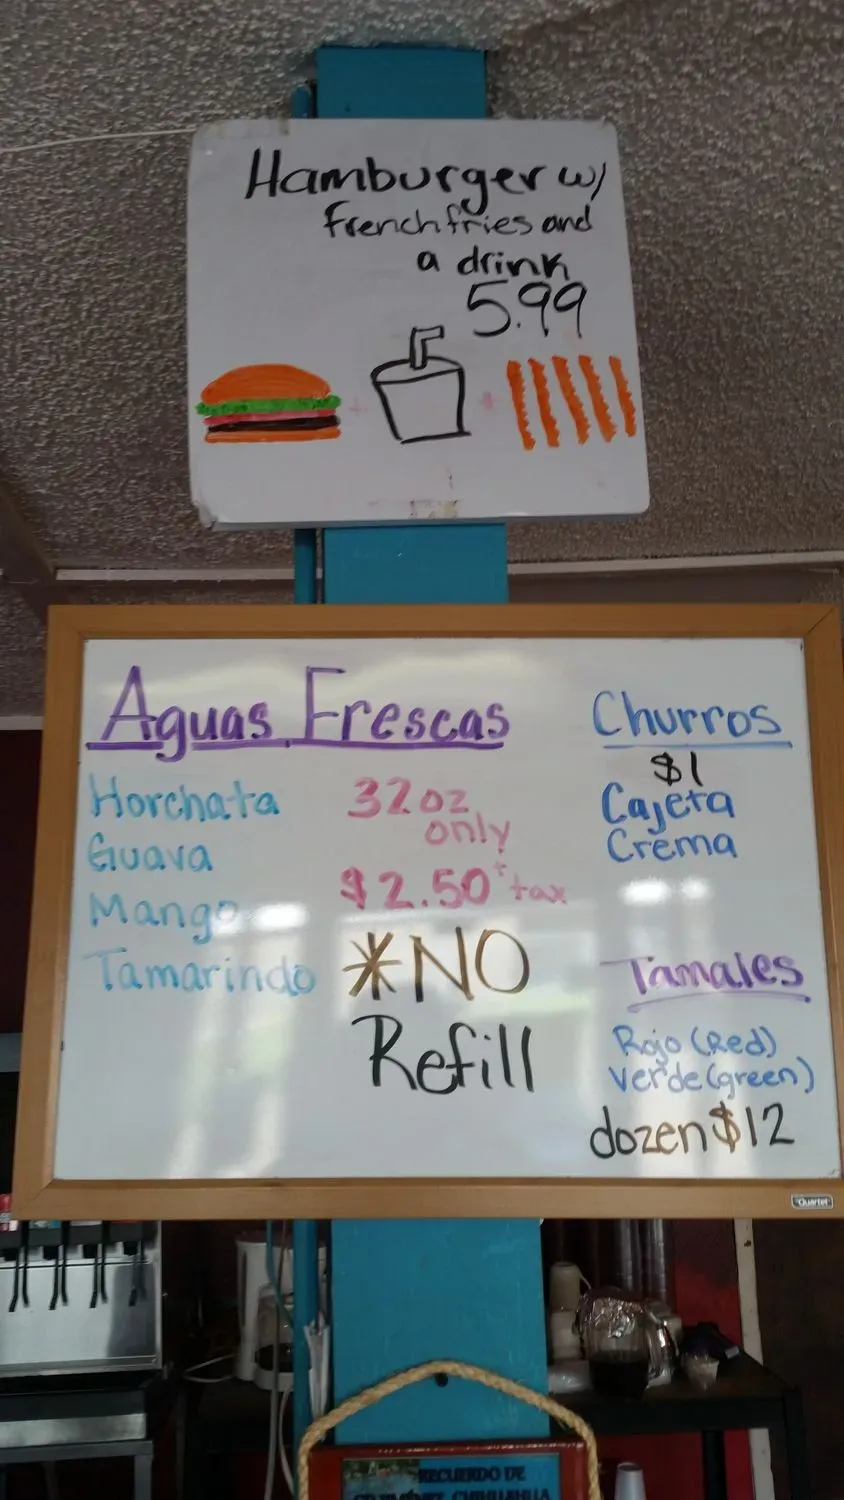 Hamburger w/
French fries and
a drink
5.99
Aguas Frescas
Horchata
Guava
Mango
Tamarindo
32oz
only
$2.50 + tax
*NO
Refill
Churros
$1
Cajeta
Crema
Tamales
Rojo (Red)
Verde (green)
dozen $12
Quartet
RECUERDO DE
CHIHUAHUA